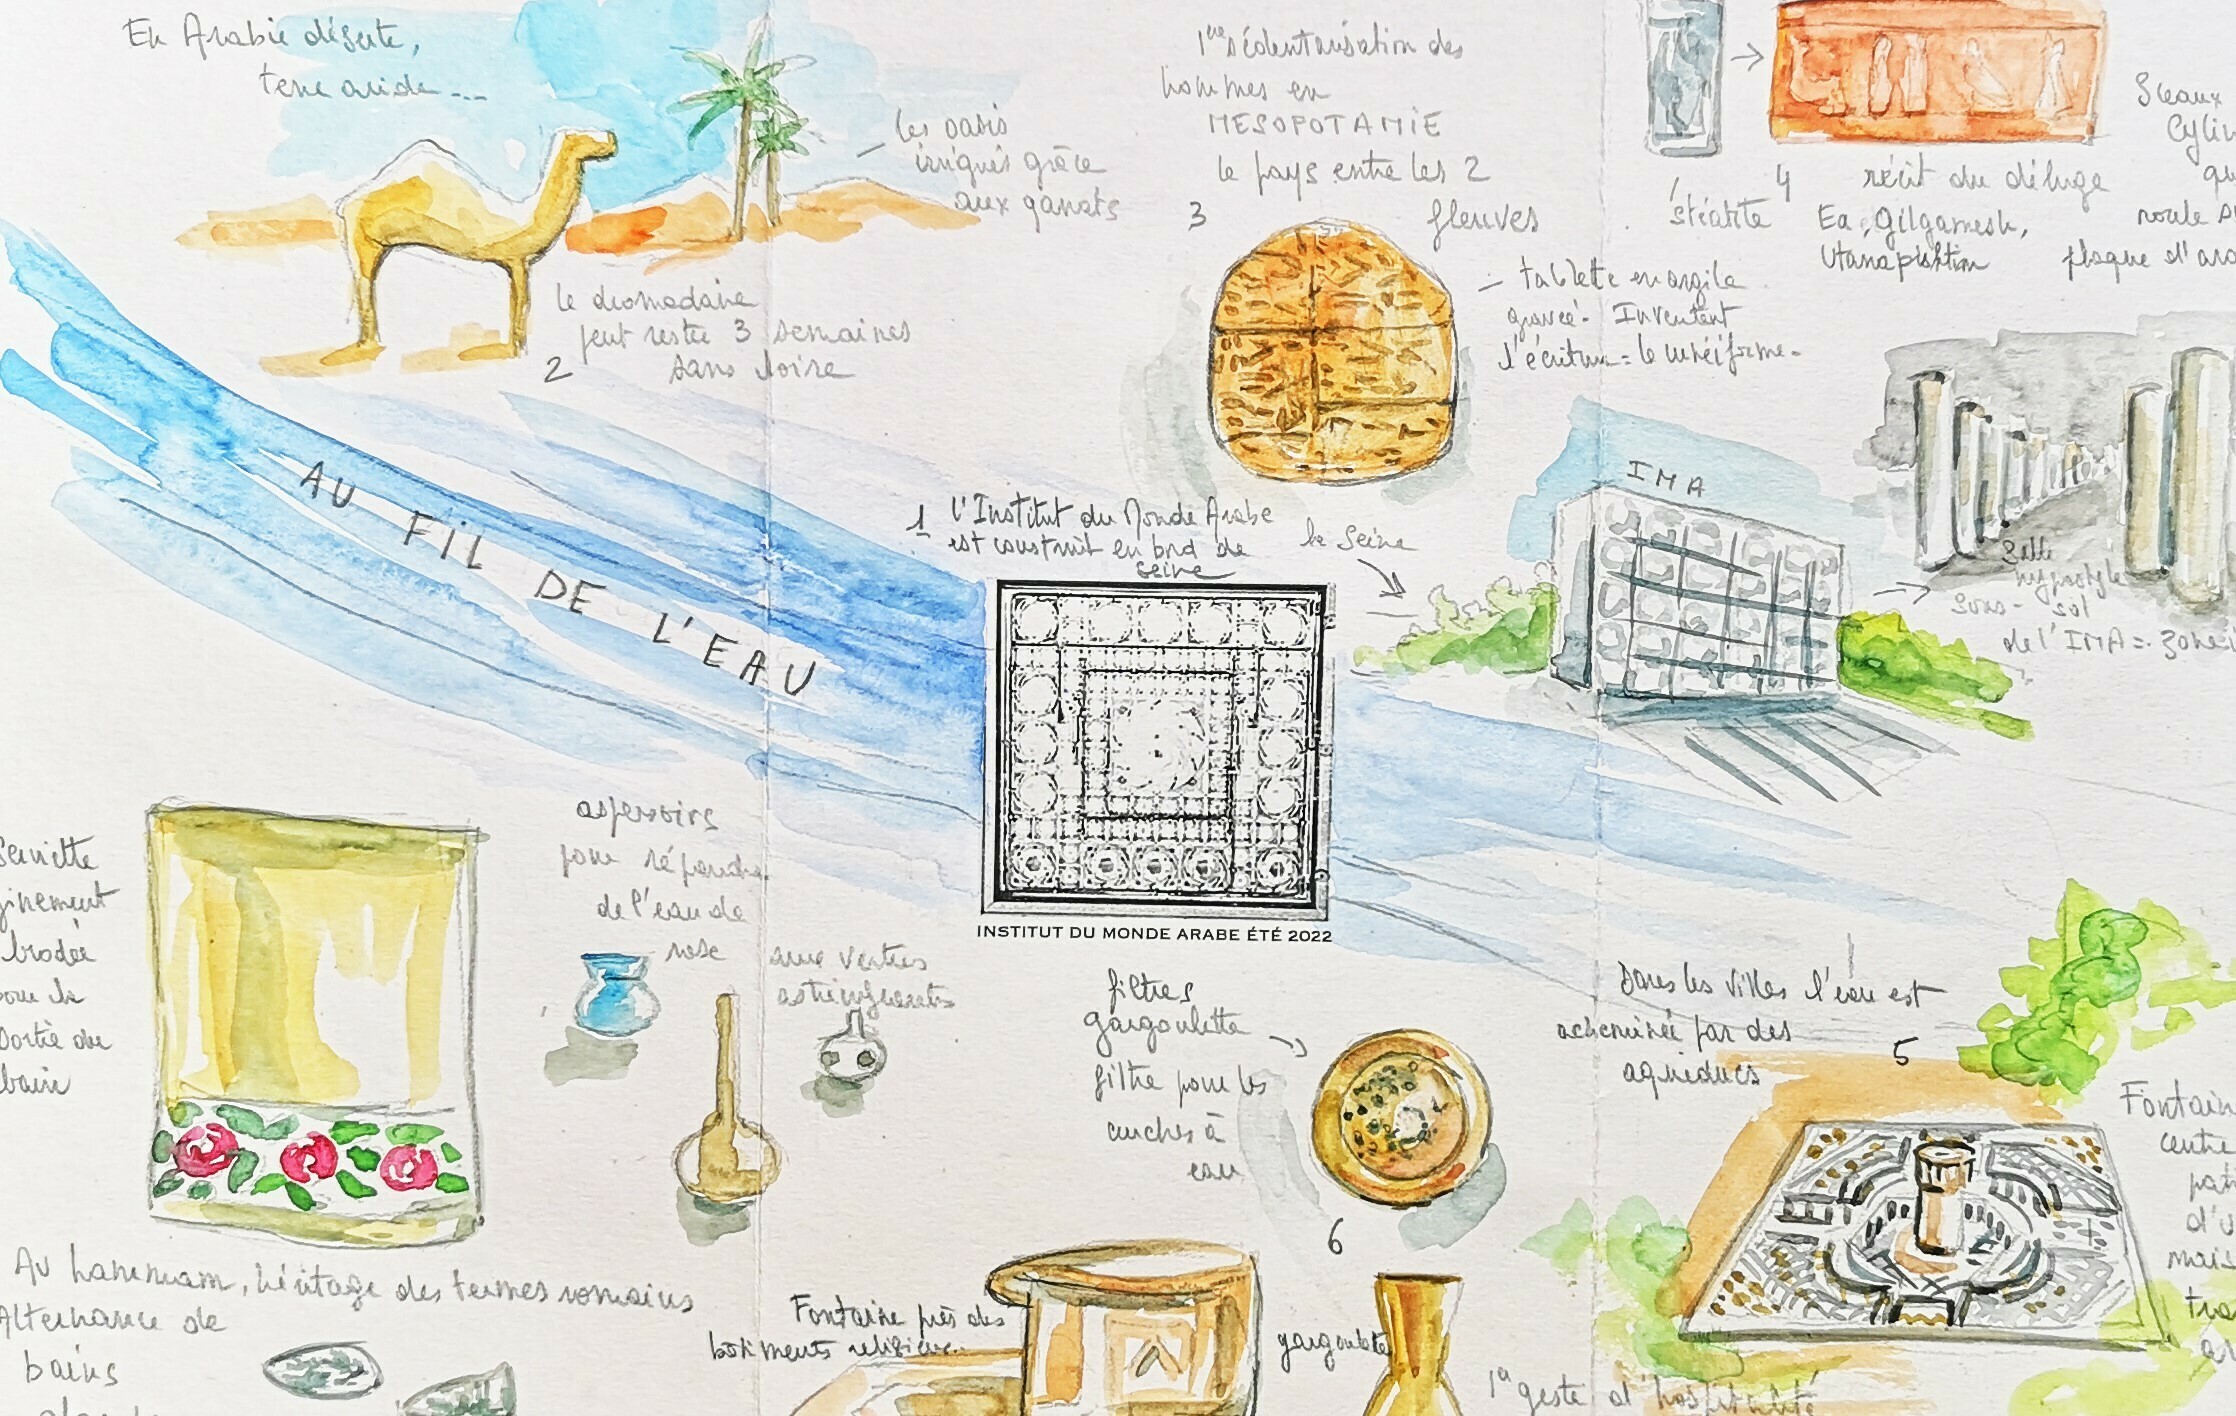 En Arabie déserte,
terre aride...
les oasis
irrigués grâce
aux qanats
le dromadaire
peut rester 3 semaines
sans boire
2
1ère sédentarisation des
hommes en
MESOPOTAMIE
le pays entre les 2
fleuves
3
tablette en argile
gravée - Inventent
l'écriture = le cunéiforme -
stéatite
4
récit du déluge
Ea, Gilgamesh,
Utanapishtim
Sceaux
roule
plaque d'
AU FIL DE L'EAU
1 l'Institut du Monde Arabe
est construit en bord de
seine
la Seine
IMA
Salle
hypostyle
sous-sol
de l'IMA =
INSTITUT DU MONDE ARABE ÉTÉ 2022
serviette
brodée
pour la
sortie du
bain
aspersoirs
pour répandre
de l'eau de
rose
aux vertus
astringentes
filtres
gargoulette
filtre pour les
cruches à
eau
6
Dans les villes l'eau est
acheminée par des
aqueducs
5
Fontaine
centre
mais
Au hammam, héritage des termes romains
Alternance de
bains
Fontaine près des
bâtiments religieux..
gargoulette
1er geste d'hospitalité